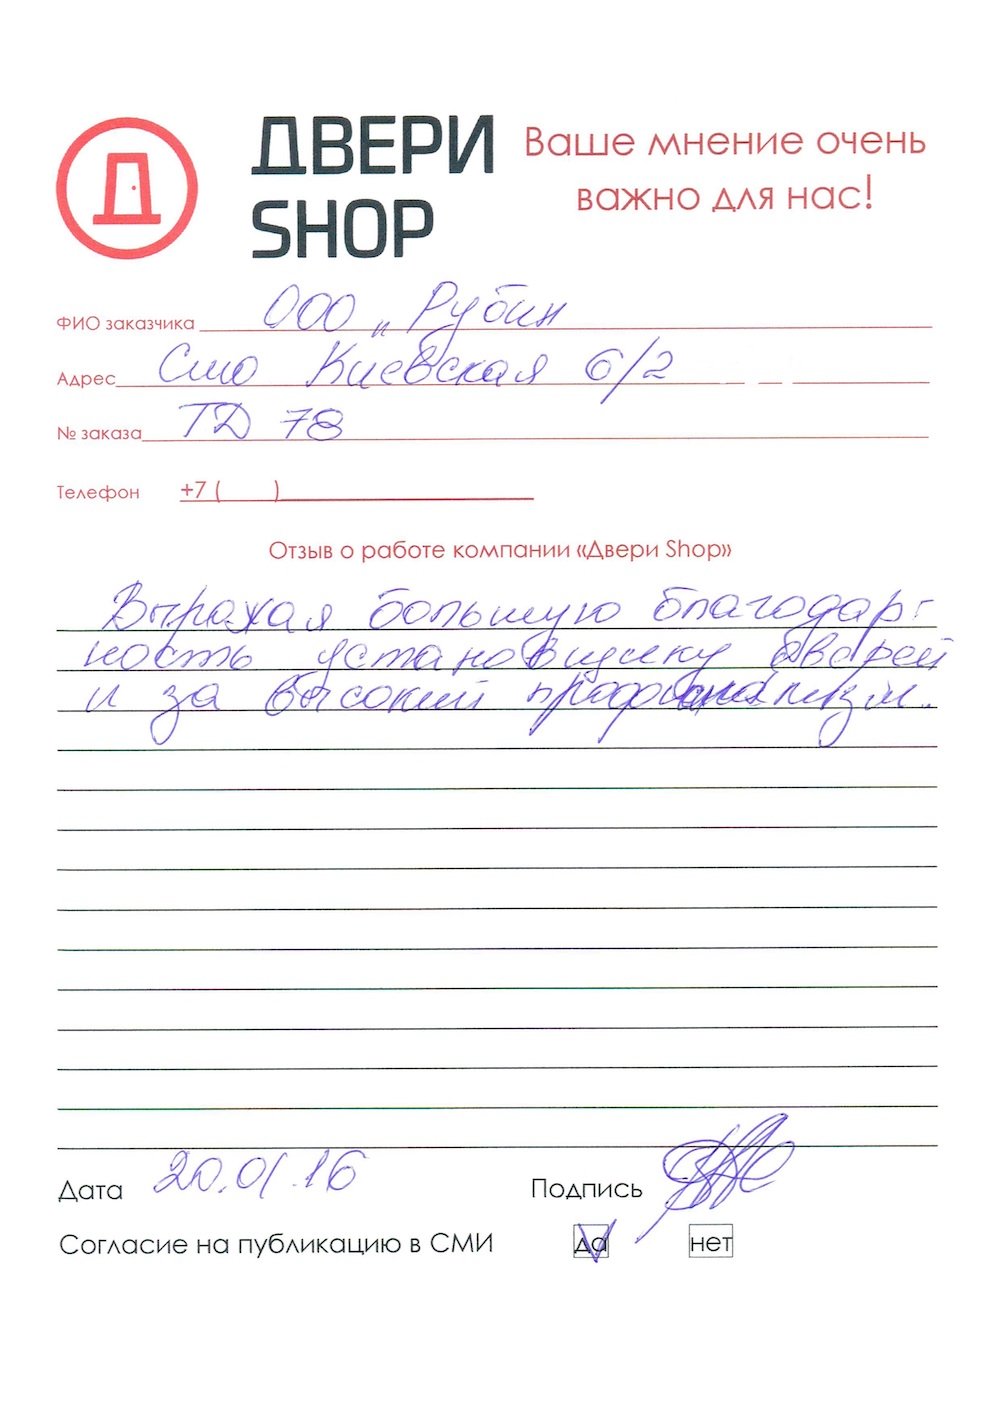 Д
ДВЕРИ
SHOP
Ваше мнение очень
важно для нас!
ФИО заказчика ООО „Рубин
Адрес Киевская 6/2
№ заказа ТД 78
Телефон +7 ( )
Отзыв о работе компании «Двери Shop»
Выражая большую благодар-
ность установщику дверей
и за высокий
Дата 20.01.16 Подпись
Согласие на публикацию в СМИ да нет